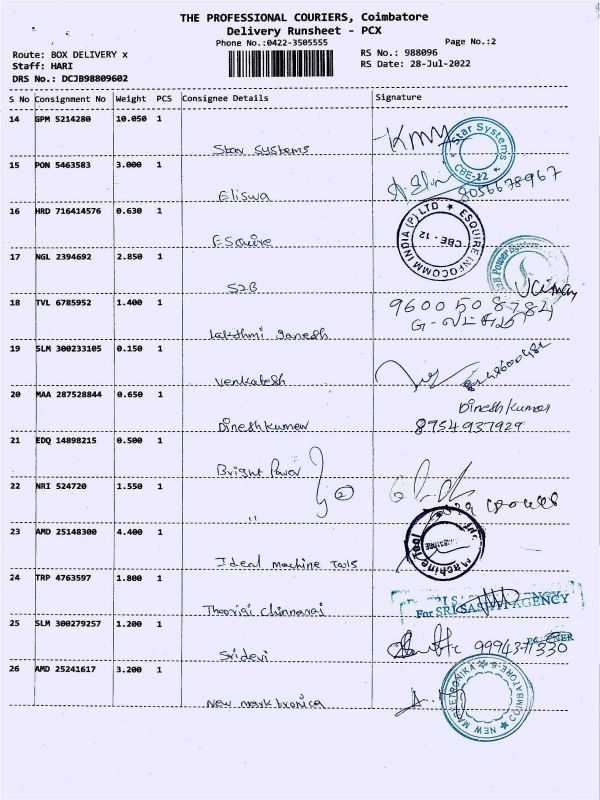 THE PROFESSIONAL COURIERS, Coimbatore
Delivery Runsheet - PCX
Phone No.:0422-3505555
Page No.:2
Route: BOX DELIVERY x
RS No.: 988096
Staff: HARI
RS Date: 28-Jul-2022
DRS No.: DCJB98809602
S No Consignment No Weight PCS Consignee Details Signature
14 GPM 5214280 10.050 1
Star Systems
Star Systems CBE-12
15 PON 5463583 3.000 1
Eliswa
8056678967
16 HRD 716414576 0.630 1
Esquire
ESQUIRE INFOCOMM INDIA (P) LTD
CBE - 12
17 NGL 2394692 2.850 1
S2B
S2B Power System
18 TVL 6785952 1.400 1
Lakshmi Ganesh
9600508784
19 SLM 300233105 0.150 1
Venkatesh
20 MAA 287528844 0.650 1
Dineshkumar
Dineshkumar
8754937929
21 EDQ 14898215 0.500 1
Bright Power
2
22 NRI 524720 1.550 1
"
23 AMD 25148300 4.400 1
Ideal machine Tools
24 TRP 4763597 1.800 1
Chinnaraj
For SRI SASTHI AGENCY
25 SLM 300279257 1.200 1
Sridevi
26 AMD 25241617 3.200 1
New mark tronica
NEW MARKETRONIKA COIMBATORE-6